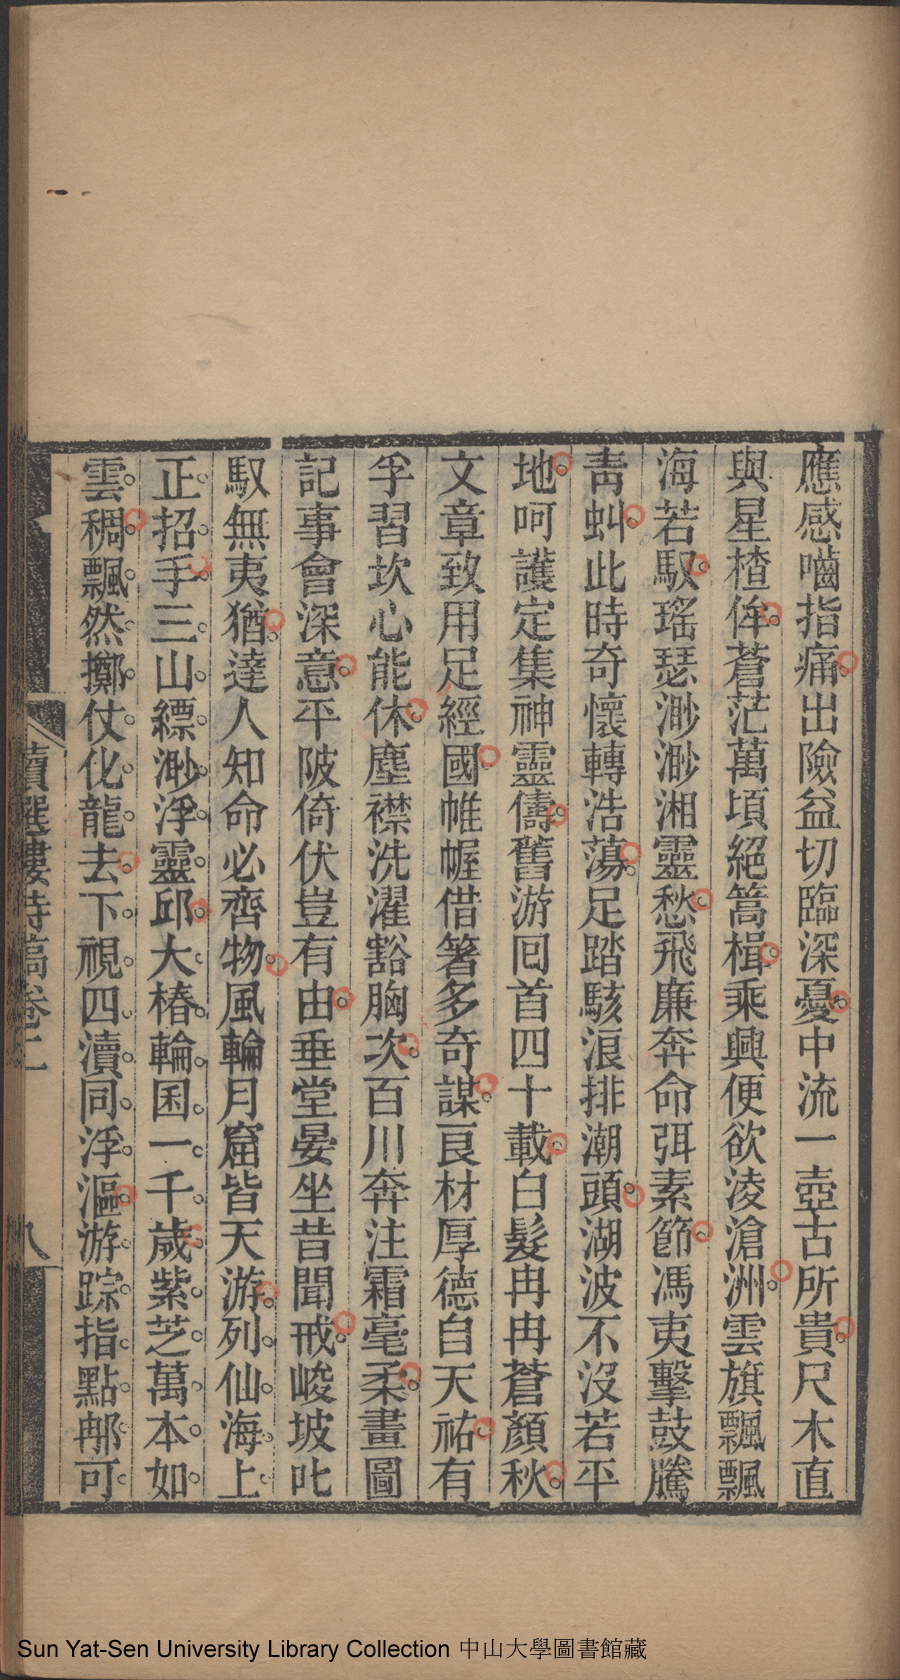 應感嚙指痛出險益切臨深憂中流一壺古所貴尺木直
與星楂侔蒼茫萬頃絕篙楫乘興便欲淩滄洲雲旗飄飄
海若馭瑤瑟渺渺湘靈愁飛廉奔命弭素節馮夷擊鼓騰
青虯此時奇懷轉浩蕩足踏駭浪排潮頭湖波不沒若平
地呵護定集神靈儔舊游回首四十載白髮冉冉蒼顏秋
文章致用足經國帷幄借箸多奇謀良材厚德自天祐有
孚習坎心能休塵襟洗濯豁胸次百川奔注霜毫柔畫圖
記事會深意平陂倚伏豈有由垂堂晏坐昔聞戒峻坡叱
馭無夷猶達人知命必齊物風輪月窟皆天游列仙海上
正招手三山縹渺浮靈邱大椿輪囷一千歲紫芝萬本如
雲稠飄然擲仗化龍去下視四瀆同浮漚游踪指點邴可
讀選樓詩稿卷二
八
Sun Yat-Sen University Library Collection 中山大學圖書館藏